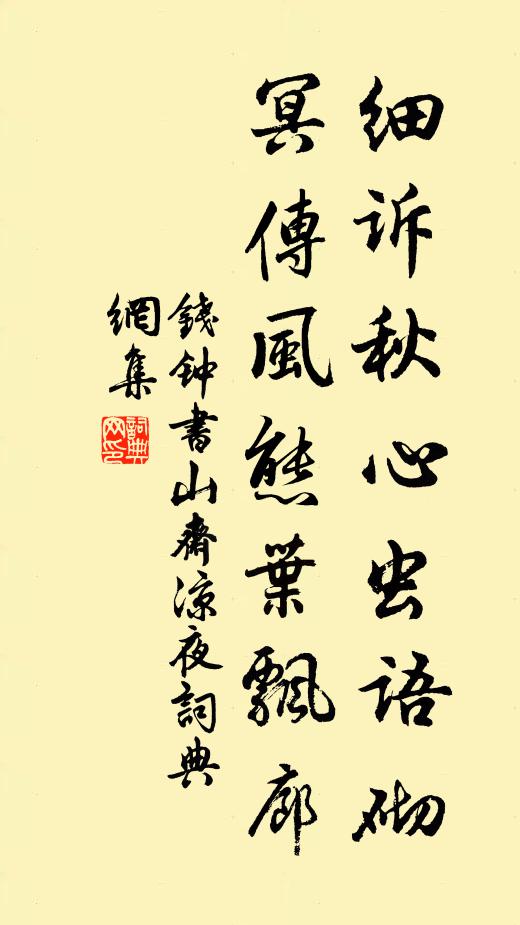 细诉秋心虫语砌
冥傳風態葉飄廊
錢钟書山齋涼夜詞典
網集
詞典网印